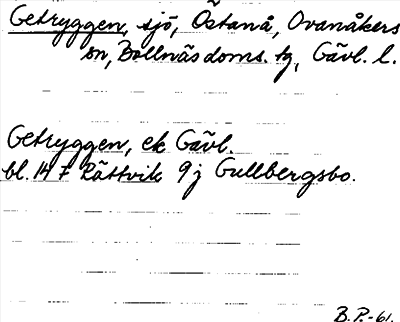 Getryggen, sjö, Östanå, Ovanåkers
sn, Bollnäs doms. tg, Gävl. l.
Getryggen, ek Gävl.
bl. 14 f Rättvik 9 j Gullbergsbo.
B.P.-61.